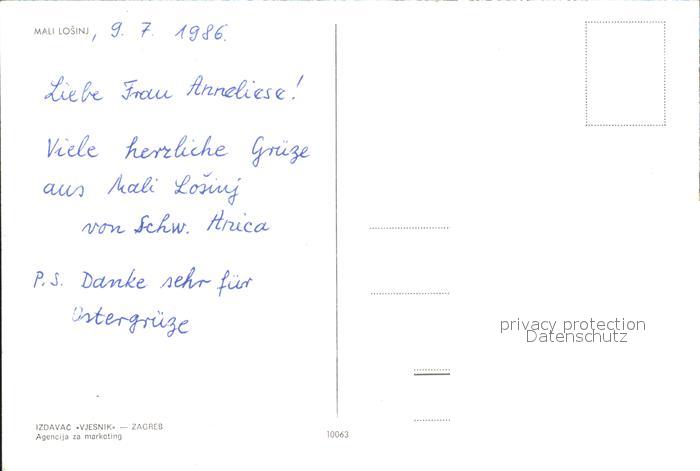 MALI LOŠINJ, 9. 7. 1986.
Liebe Frau Anneliese!
Viele herzliche Grüze
aus Mali Lošinj
von Schw. Anica
P.S. Danke sehr für
Ostergrüze
privacy protection
Datenschutz
IZDAVAČ «VJESNIK» — ZAGREB
Agencija za marketing
10063